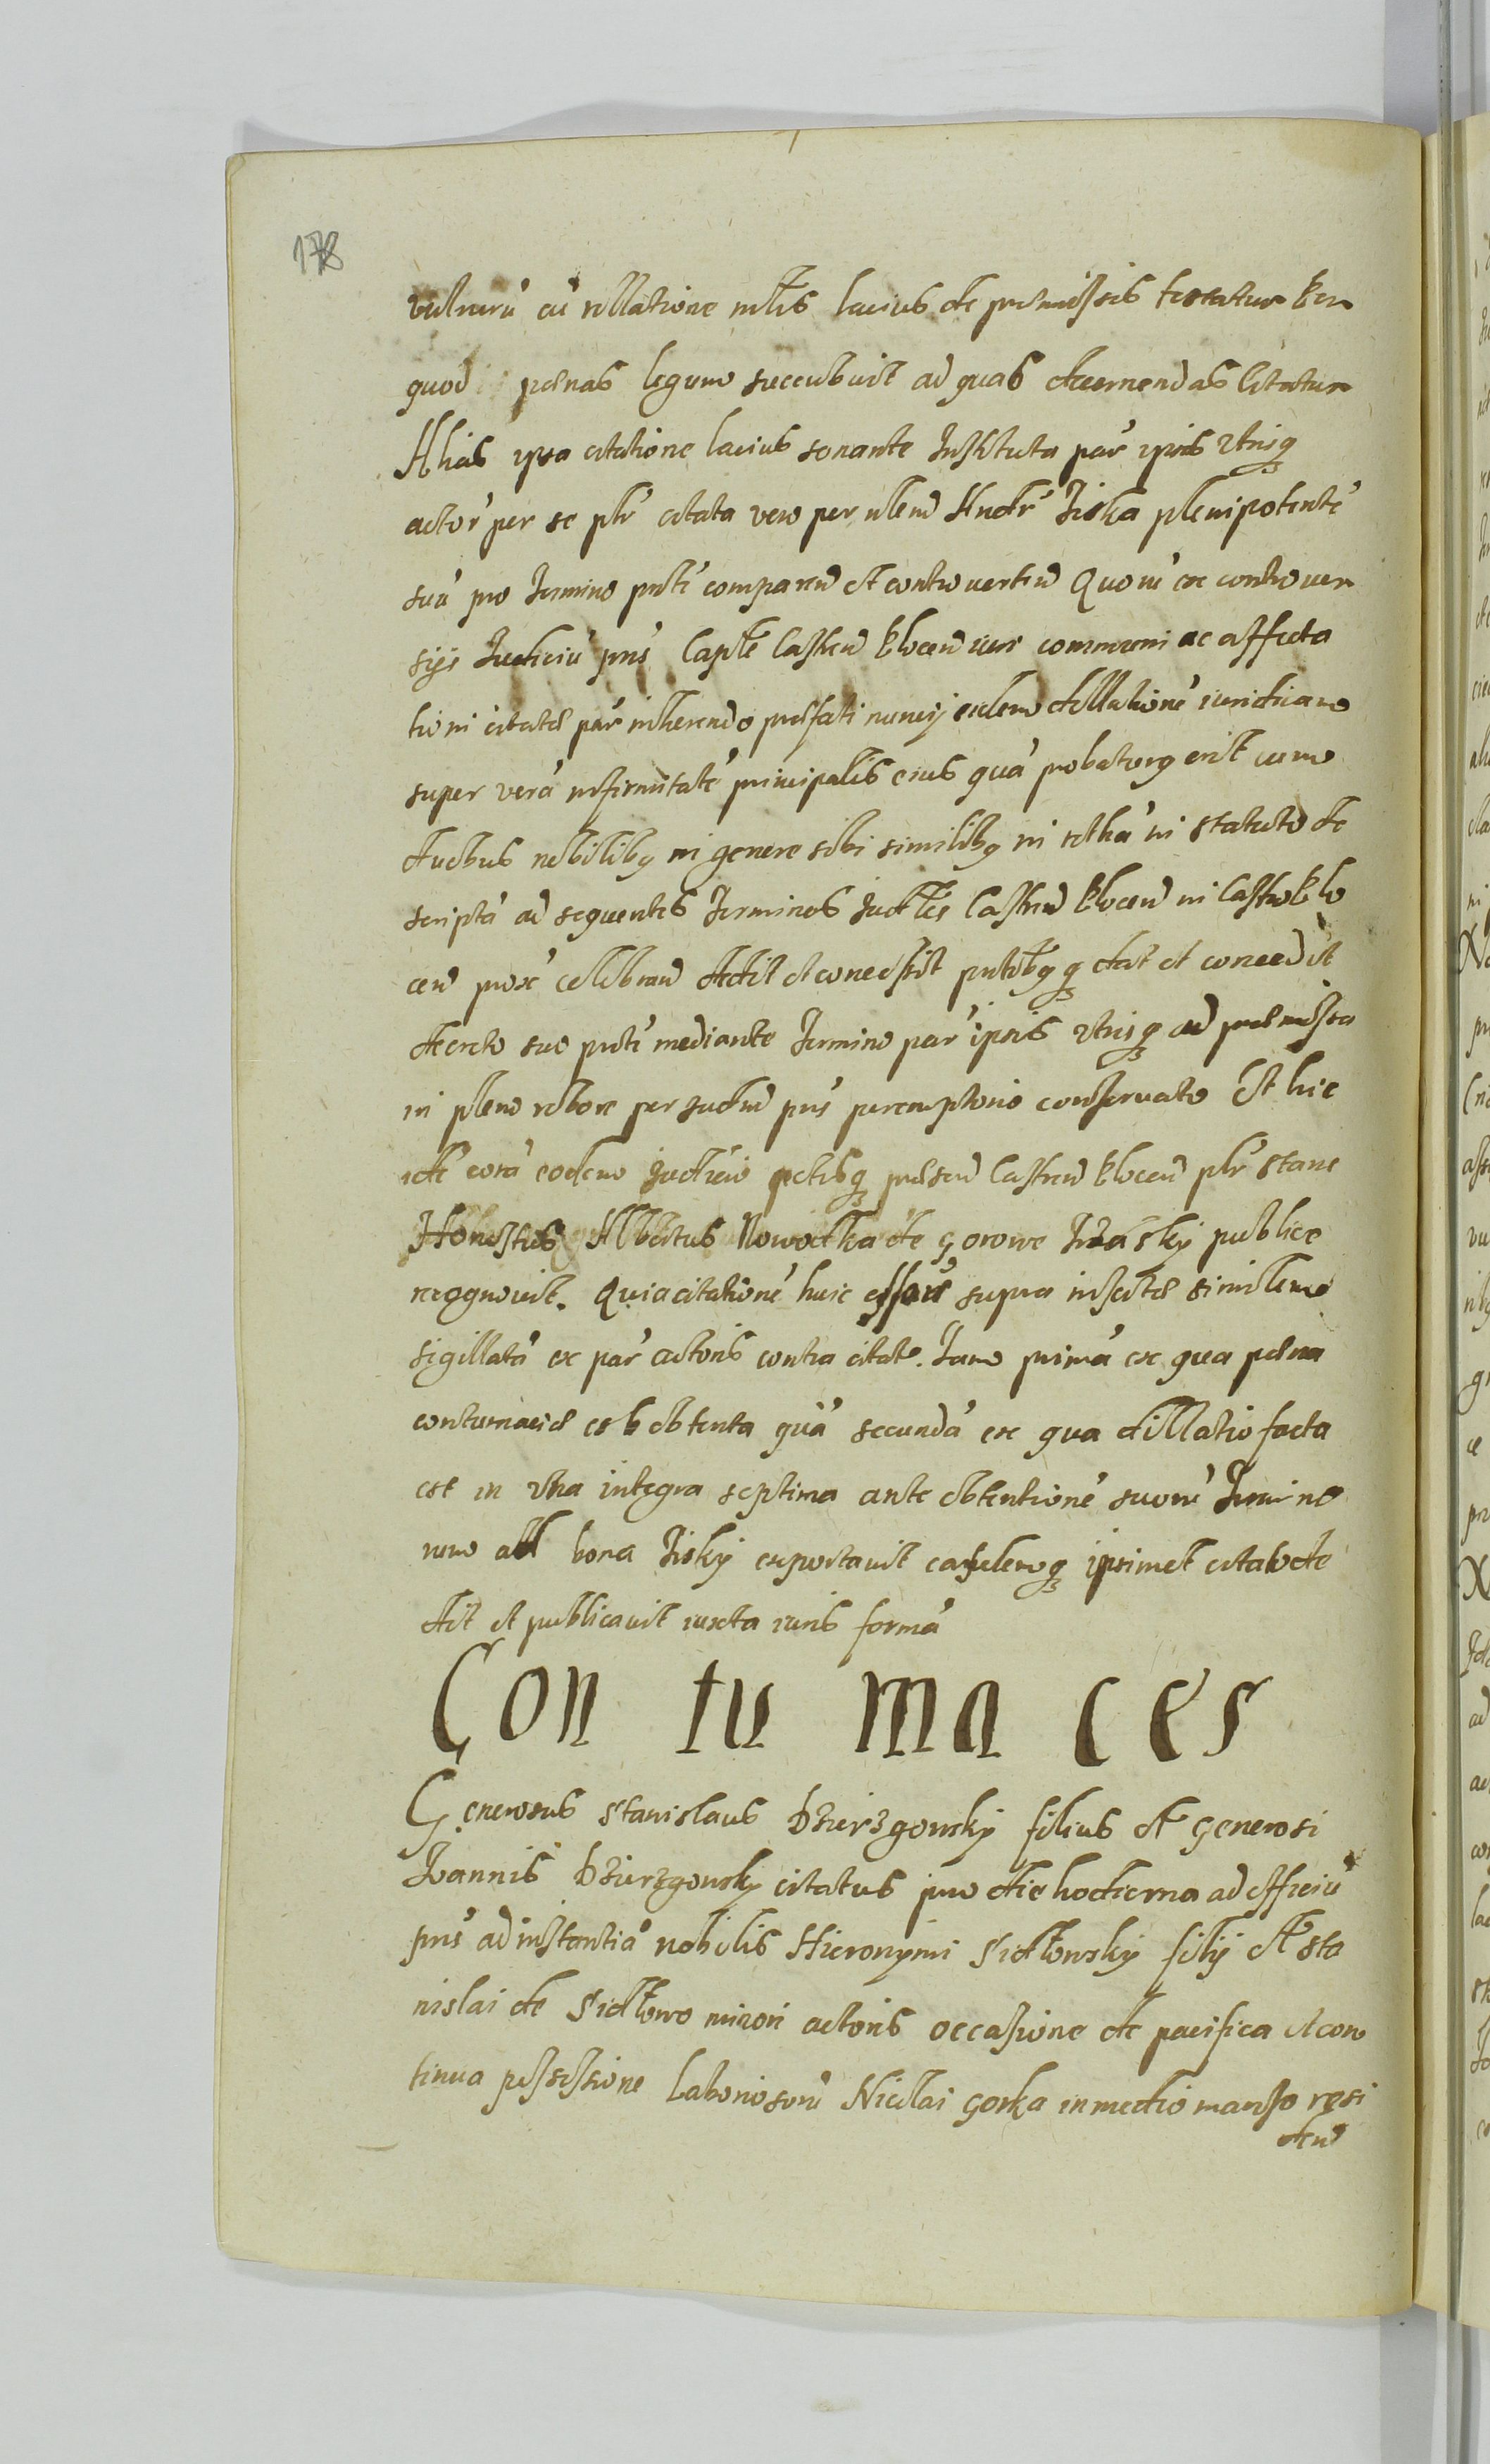 178
vulnerū cū rellatione mltis lacius de praemissis testatur ter
quod paenas legum succubuit ad quas decernendas citatur
Alias ipsa citatione lacius sonante Instituta par ipsis vtrisq
actor per se plr citata vero per nlem Andr Liska plenipotentē
suū pro termino pntī comparen et controverten Quorū ex controver
sijs Iudiciū pns Capte Castren Plocen iure communi ac affecta
tioni citatae par inherendo praefati nuncij eidem dillationē iuridicam
super verā infirmitatē principalis eius quā probaturq erit cum
duobus nobilibq in genere sibi similibq in rothā in statuto de
scriptā ad sequentes terminos Iudles Castren Plocen in Castro Plo
cen prox celebran dedit et concessit pntibqq dat et concedit
decreto suo pntī mediante termino par ipsis vtrisq ad praemissa
in pleno robore per Iudm pns peremptorio conservato Et hic
ide corā eodem Iudicio actisq praesen Castren Plocen plr stans
Honestus Albertus Nowodka de Gorowe publice
recognovit. Quia citationē huic supra insertae similem
sigillatā ex par actoris contra citat. Tam primā ex qua paena
contumaciae est obtenta quā secundā ex qua dillatio facta
est in vna integra septima ante obtentionē suorū Termino
rum ad bona Lisky exportavit easdemq ipsimet citato de
dit et publicavit iuxta iuris formā
Con tu ma ces
Generosus Stanislaus Dzierzgowsky filius et Generosi
Ioannis Dzierzgowsky citatus pro die hodierna ad officiū
pns ad instantiā nobilis Hieronymi Sidłowsky filij et Sta
nislai de Sidłowo minori actoris occasione de pacifica et con
tinua possessione Laboriosorū Nicolai Gorka in medio manso resi
den